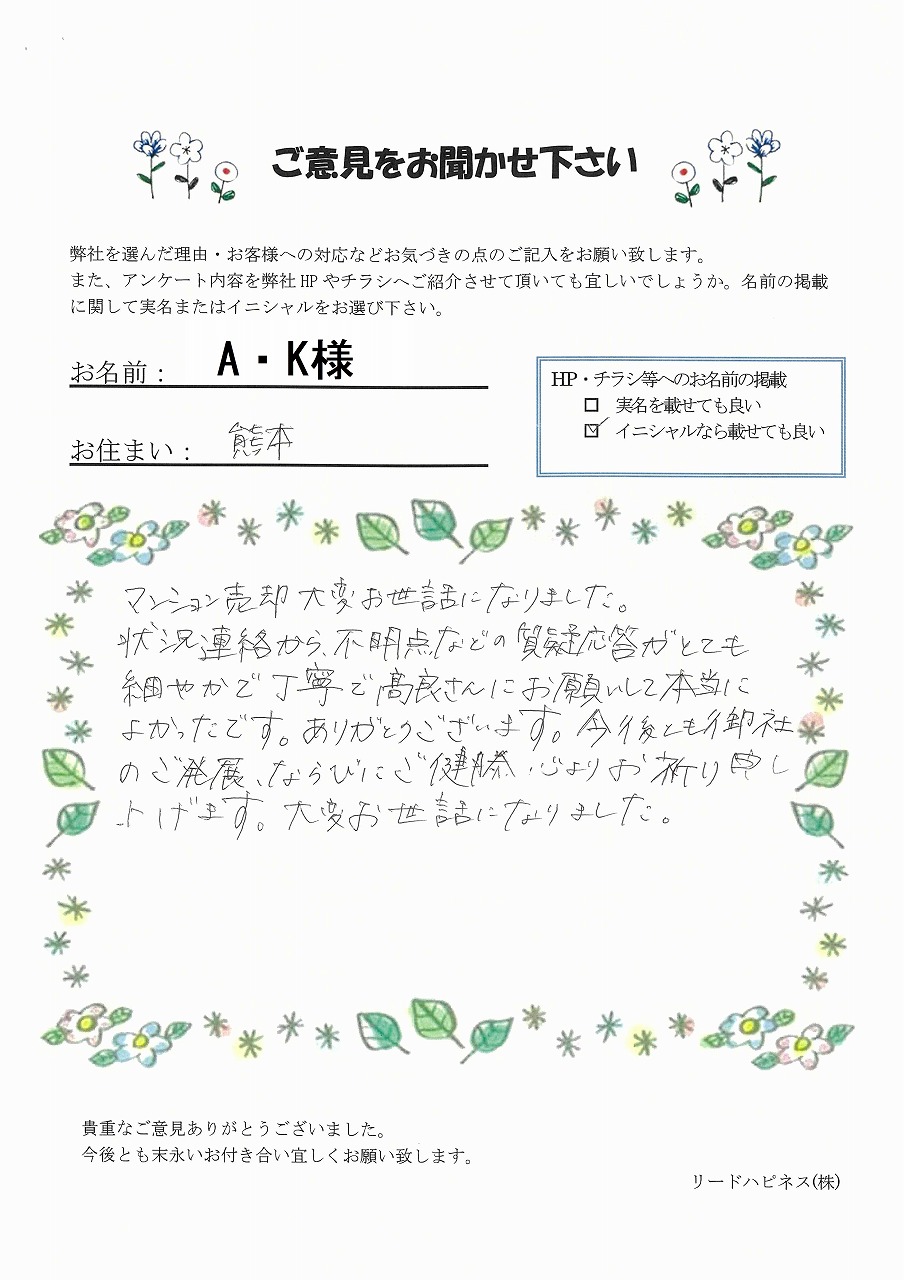 ご意見をお聞かせ下さい
弊社を選んだ理由・お客様への対応などお気づきの点のご記入をお願い致します。
また、アンケート内容を弊社HPやチラシへご紹介させて頂いても宜しいでしょうか。名前の掲載
に関して実名またはイニシャルをお選び下さい。
お名前： A・K様
お住まい： 熊本
HP・チラシ等へのお名前の掲載
□ 実名を載せても良い
☑ イニシャルなら載せても良い
マンション売却大変お世話になりました。
状況連絡から、不明点などの質疑応答がとても
細やかで丁寧で髙良さんにお願いして本当に
よかったです。ありがとうございます。今後とも御社
のご発展、ならびにご健勝心よりお祈り申し
上げます。大変お世話になりました。
貴重なご意見ありがとうございました。
今後とも末永いお付き合い宜しくお願い致します。
リードハピネス(株)